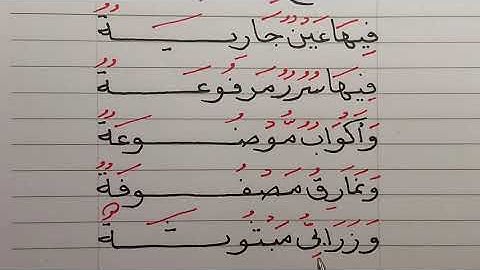 فِيهَا عَيْنٌ جَارِيَةٌ
فِيهَا سُرُرٌ مَرْفُوعَةٌ
وَأَكْوَابٌ مَّوْضُوعَةٌ
وَنَمَارِقُ مَصْفُوفَةٌ
وَزَرَابِيُّ مَبْثُوثَةٌ